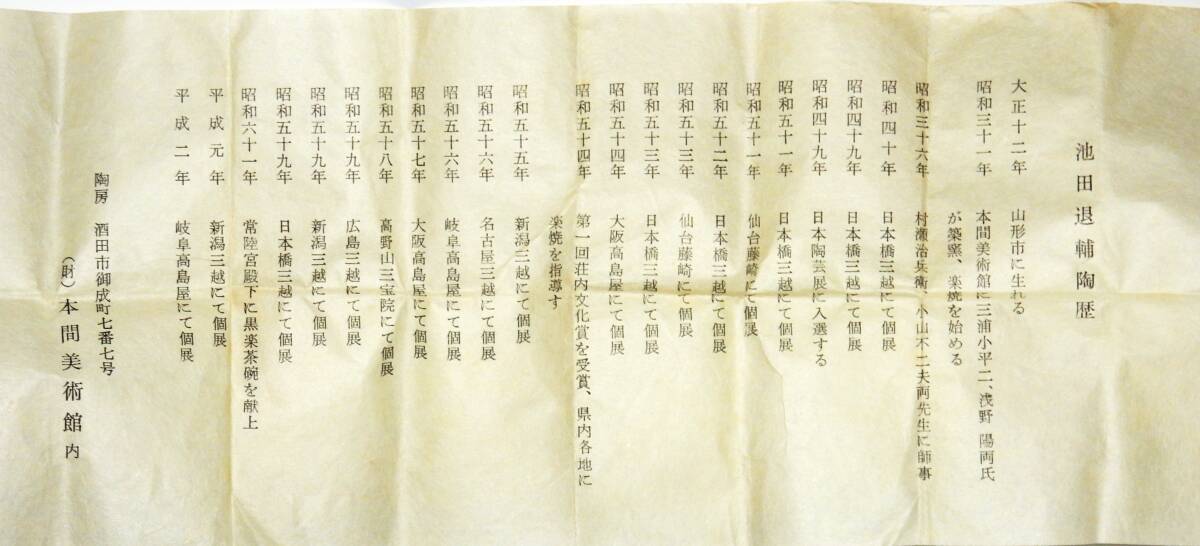 池田退輔陶歴
大正十二年 山形市に生れる
昭和三十一年 本間美術館に三浦小平二、浅野 陽両氏
が築窯、楽焼を始める
昭和三十六年 村瀬治兵衛、小山不二夫両先生に師事
昭和四十年 日本橋三越にて個展
昭和四十九年 日本橋三越にて個展
昭和四十九年 日本陶芸展に入選する
昭和五十一年 日本橋三越にて個展
昭和五十一年 仙台藤崎にて個展
昭和五十二年 日本橋三越にて個展
昭和五十三年 仙台藤崎にて個展
昭和五十三年 日本橋三越にて個展
昭和五十四年 大阪高島屋にて個展
昭和五十四年 第一回荘内文化賞を受賞、県内各地に
楽焼を指導す
昭和五十五年 新潟三越にて個展
昭和五十六年 名古屋三越にて個展
昭和五十六年 岐阜高島屋にて個展
昭和五十七年 大阪高島屋にて個展
昭和五十八年 高野山三宝院にて個展
昭和五十九年 広島三越にて個展
昭和五十九年 新潟三越にて個展
昭和五十九年 日本橋三越にて個展
昭和六十一年 常陸宮殿下に黒楽茶碗を献上
平成元年 新潟三越にて個展
平成二年 岐阜高島屋にて個展
陶房 酒田市御成町七番七号
（財）本間美術館内